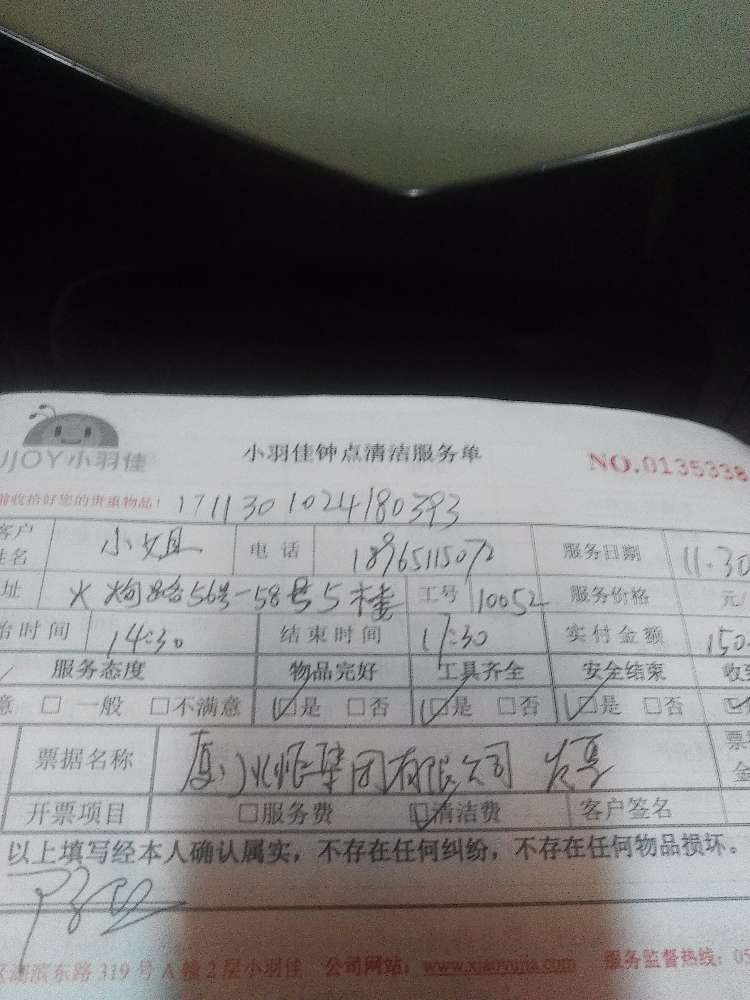 小羽佳钟点清洁服务单
NO.0135338
JJOY小羽佳
收拾好您的贵重物品！ 171130 1024180393
客户姓名 小姐 电话 18965115072 服务日期 11.30
址 火炬路56号-58号5楼 工号 10052 服务价格 元/
始时间 14:30 结束时间 17:30 实付金额 150
服务态度 物品完好 工具齐全 安全结束 收
意 □ 一般 □不满意 ☑是 □否 ☑是 □否 ☑是 □否
票据名称 集团有限公司 票 金
开票项目 □服务费 ☑清洁费 客户签名
以上填写经本人确认属实，不存在任何纠纷，不存在任何物品损坏。
区湖滨东路319号A幢2层小羽佳 公司网站：www.xiaoyujia.com 服务监督热线：05